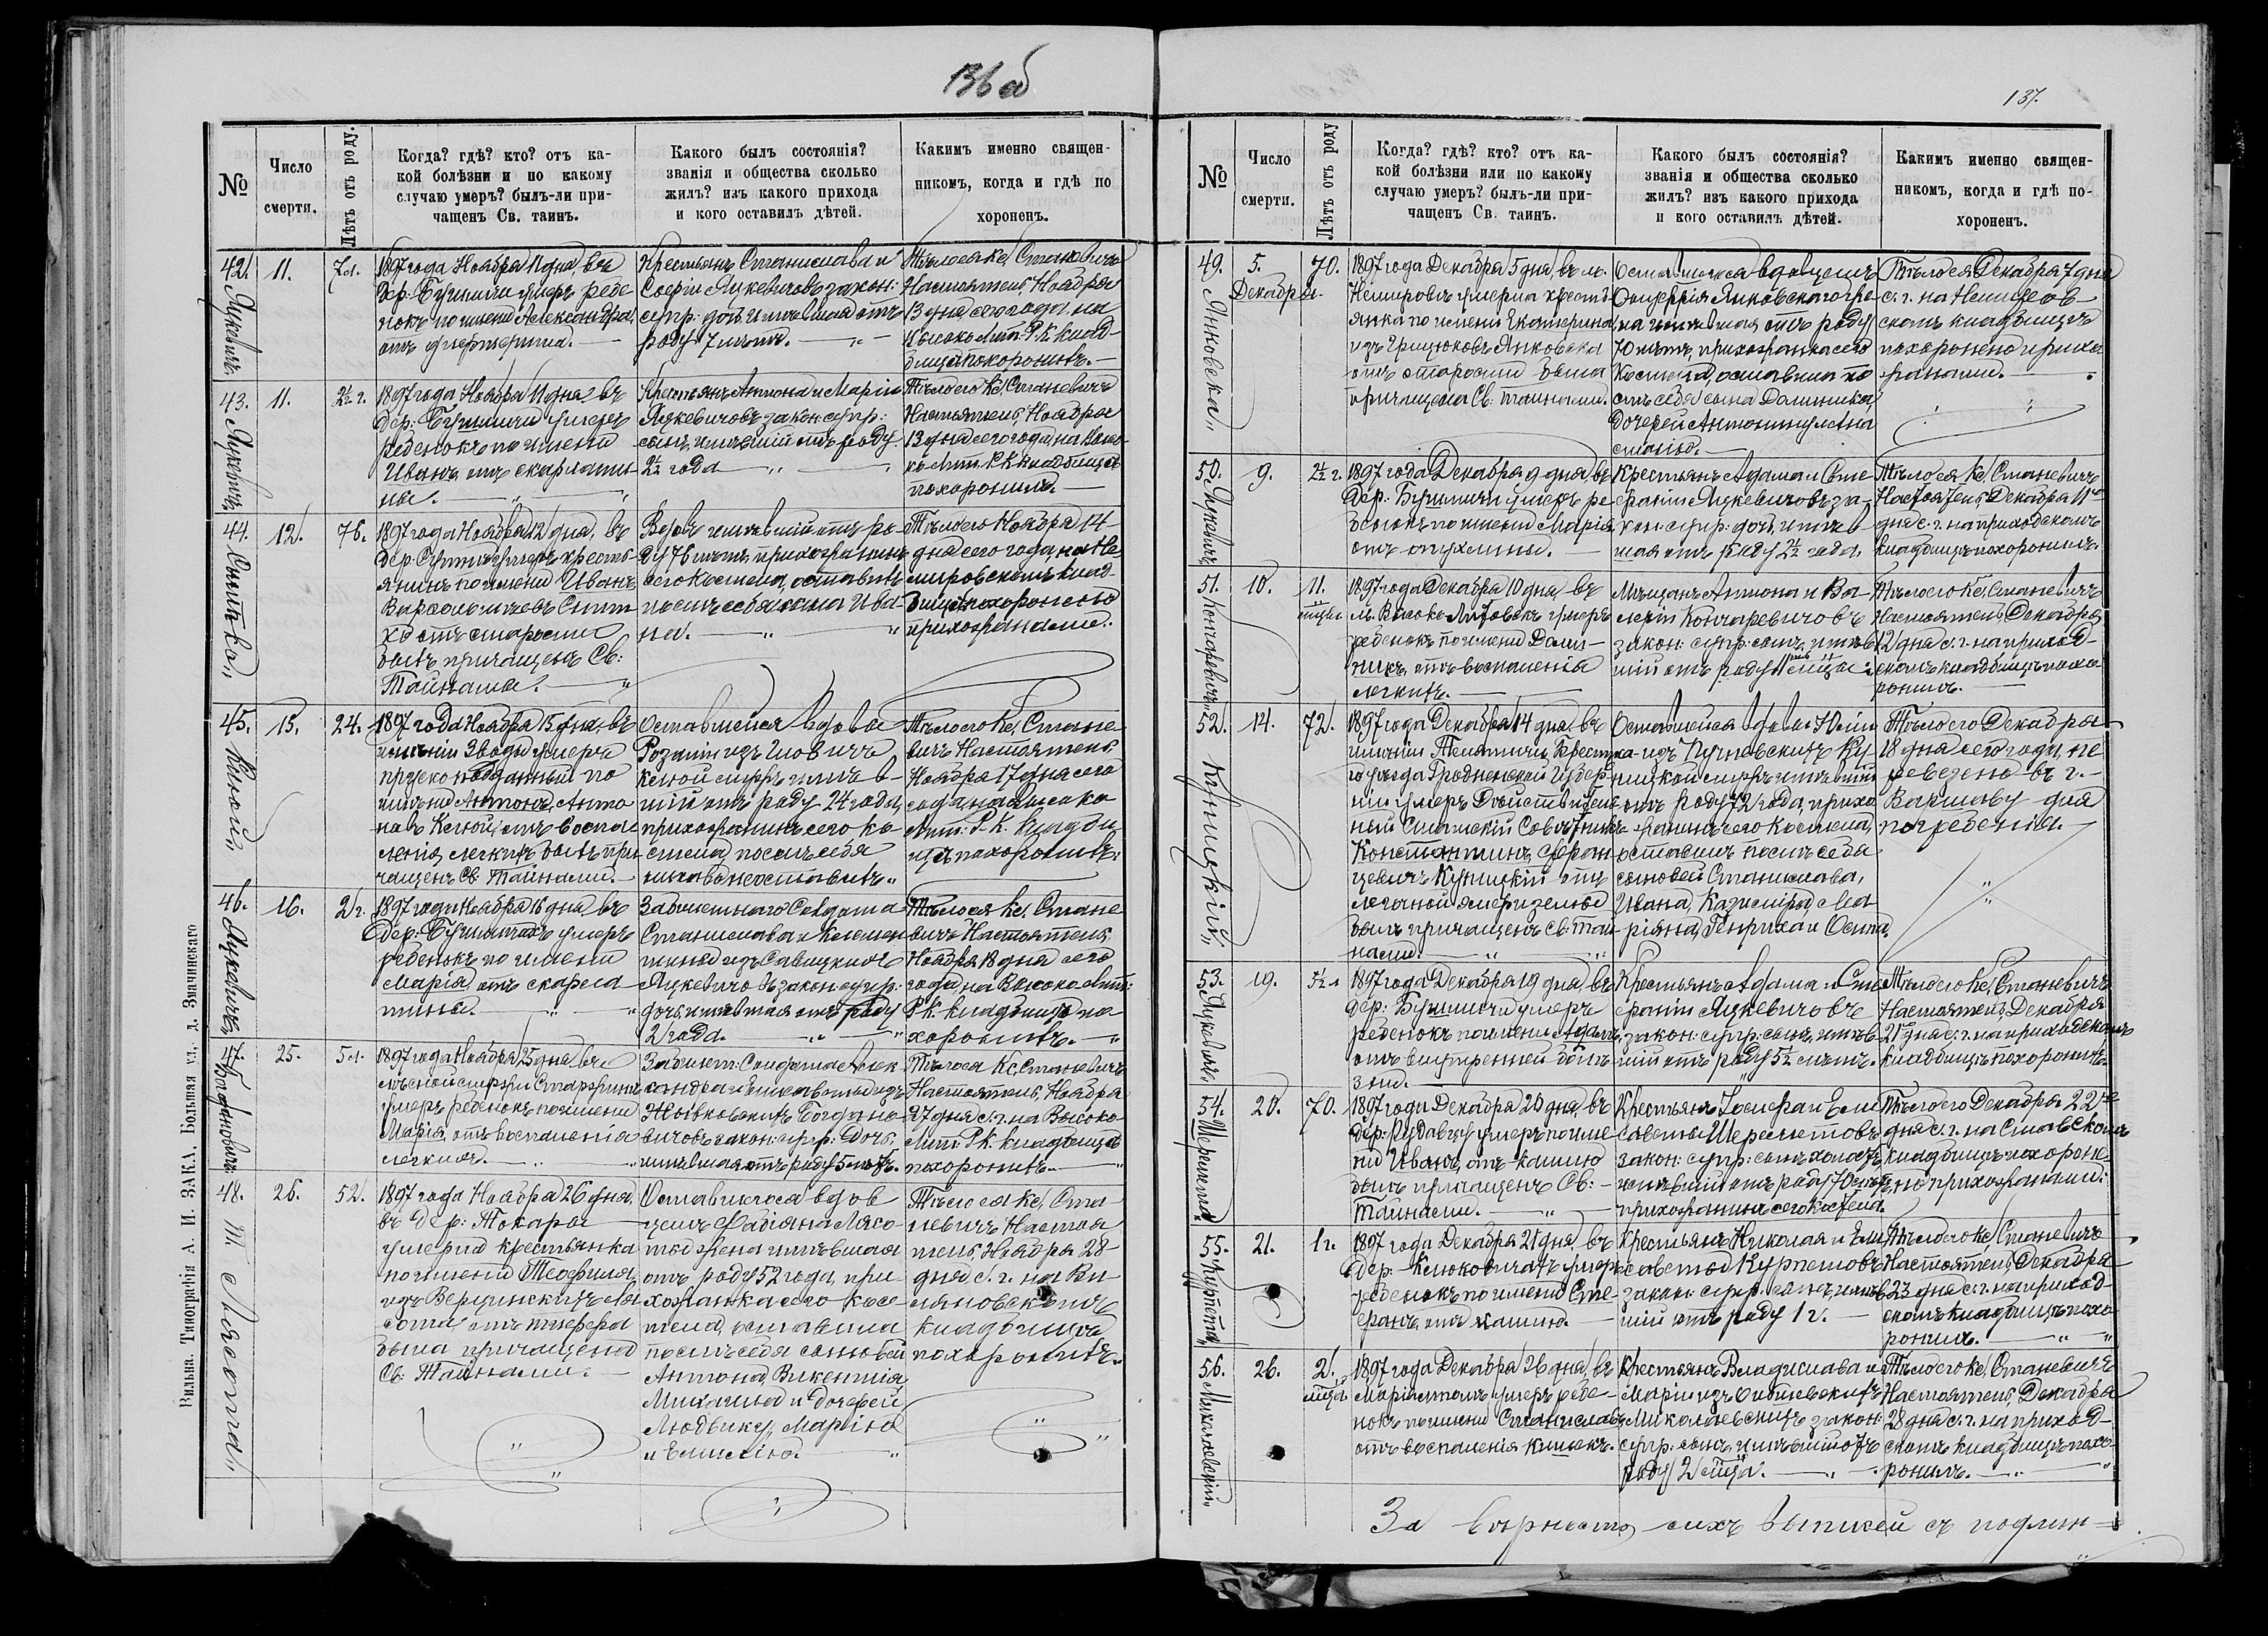 136 об
№
Число
смерти.
Лѣтъ отъ роду.
Когда? гдѣ? кто? отъ ка-
кой болѣзни и по какому
случаю умеръ? былъ-ли при-
чащенъ Св. таинъ.
Какого былъ состоянія?
званія и общества сколько
жилъ? изъ какого прихода
и кого оставилъ дѣтей.
Какимъ именно священ-
никомъ, когда и гдѣ по
хороненъ.
42.
Лукевичъ
11.
7 л.
1897 года Ноября 11 дня, въ
дер. умеръ ребе
нокъ по имени Александра,
отъ дифтерита.
Крестьянъ Станислава и
Софіи Лукевичовъ закон:
супр: дочь имѣвшая отъ
роду 7 лѣтъ.
Тѣло ея Кс. Станевичъ
Настоятель, Ноября
13 дня сего года, на
Высоколит. Р. К. клад-
бищѣ похоронилъ.
43.
Лукевичъ
11.
2½ г.
1897 года Ноября 11 дня, въ
дер: умеръ
ребенокъ по имени
Иванъ, отъ скарлати
ны.
Крестьянъ Антона и Маріи
Лукевичовъ закон: супр:
сынъ имѣвшій отъ роду
2½ года
Тѣло его Кс. Станевичъ
Настоятель, Ноября
13 дня сего года, на Высо-
ко Лит. Р. К. кладбищѣ
похоронилъ.
44.
12.
76.
1897 года Ноября 12 дня, въ
дер. умеръ кресть
янинъ по имени Иванъ
отъ старости
былъ причащенъ Св:
Тайнами.
Вдовъ имѣвшій отъ ро
ду 76 лѣтъ, прихожанинъ
сего Костела, оставилъ
послѣ себя сына Ива-
на.
Тѣло его Ноября 14
дня сего года, на Не
мировскомъ клад-
бищѣ похоронено
прихожанами.
45.
15.
24.
1897 года Ноября 15 дня, въ
имѣніи Зводы умеръ
прусско подданный по
имени Антонъ, Анто
новъ отъ воспа-
ленія легкихъ былъ при
чащенъ Св. Тайнами.
Оставшейся вдовы
Розаліи изъ
мужъ имѣв-
шій отъ роду 24 года,
прихожанинъ сего ко-
стела, послѣ себя
никого не оставилъ.
Тѣло его Кс. Стане
вичъ Настоятель
Ноября 17 дня сего
года, на Высоко
Лит: Р. К. кладби
щѣ похоронилъ.
46.
Лукевичъ
16.
2 г.
1897 года Ноября 16 дня, въ
дер: умеръ
ребенокъ по имени
Марія отъ скарла
тины.
Забилетнаго Солдата
Станислава и Клемен
тины изъ Савицкихъ
Лукевичовъ закон: супр:
дочь имѣвшая отъ роду
2 года.
Тѣло ея Кс. Стане
вичъ Настоятель
Ноября 18 дня сего
года на Высоко Лит:
Р. К. кладбищѣ по
хоронилъ.
47.
Богдановичъ
25.
5 л.
1897 года Ноября 25 дня въ
умеръ ребенокъ по имени
Марія, отъ воспаленія
легкихъ.
Забилет: Солдата Алек
сандра и Елисаветы изъ
Богдано
вичовъ закон: супр: дочь
имѣвшая отъ роду 5 лѣтъ.
Тѣло ея Кс. Станевичъ
Настоятель, Ноября
27 дня с. г. на Высоко
Лит: Р. К. кладбищѣ
похоронилъ.
48.
Лясота
26.
52.
1897 года Ноября 26 дня,
въ дер: Токары
умерла крестьянка
по имени Теофиля
изъ Ля
сота отъ тифера
была причащена
Св. Тайнами.
Оставшагося вдов
цемъ Фабіяна Лясо
ты жена имѣвшая
отъ роду 52 года, при
хожанка сего косте
тела, оставила
послѣ себя сыновей
Антона, Викентія
Михаила и дочерей
Людвику, Марію
и Емилію.
Тѣло ея Кс. Ста
невичъ Настоя
тель, Ноября 28
дня с. г. на
кладбищѣ
похоронилъ.
Вильна. Типографія А. И. ЗАКА. Большая ул., д. Значинскаго
137.
№
Число
смерти.
Лѣтъ отъ роду
Когда? гдѣ? кто? отъ ка-
кой болѣзни или по какому
случаю умеръ? былъ-ли при-
чащенъ Св. таинъ.
Какого былъ состоянія?
званія и общества сколько
жилъ? изъ какого прихода
и кого оставилъ дѣтей.
Какимъ именно священ-
никомъ, когда и гдѣ по-
хороненъ.
49.
Янковска
5.
Декабря.
70.
1897 года Декабря 5 дня, въ м.
Немировъ умерла кресть
янка по имени Екатерина
изъ Грицюковъ Янковска
отъ старости была
причащена Св: Тайнами.
Оставшагося вдовцемъ
Онуфрія Янковскаго же
на имѣвшая отъ роду
70 лѣтъ, прихожанка сего
Костела, оставила по
слѣ себя сына Доминика,
дочерей Антонину и Ана
стасію.
Тѣло ея Декабря 7 дня
с. г. на Немиров-
скомъ кладбищѣ
похоронено прихо
жанами.
50.
Лукевичъ
9.
2½ г.
1897 года Декабря 9 дня, въ
дер: умеръ ре-
бенокъ по имени Марія
отъ опухлины.
Крестьянъ Адама и Сте
фаніи Лукевичовъ за-
кон: супр: дочь имѣв
шая отъ роду 2½ года.
Тѣло ея Кс. Станевичъ
Настоятель, Декабря 11го
дня с. г. на приходскомъ
кладбищѣ похоронилъ.
51.
Кончаревичъ
10.
11.
мцы.
1897 года Декабря 10 дня, въ
м. Высоко-Литовскъ умеръ
ребенокъ по имени Доми-
никъ, отъ воспаленія
легкихъ.
Мѣщанъ Антона и Ва-
леріи Кончаревичовъ
закон: супр: сынъ имѣв
шій отъ роду 11 мцы.
Тѣло его Кс. Станевичъ
Настоятель Декабря
12 дня с. г. на приход-
скомъ кладбищѣ похо
ронилъ.
52.
Куницкій
14.
72.
1897 года Декабря 14 дня, въ
имѣніи Телятичи, Брестска-
го уѣзда Гродненской Губер-
ніи умеръ Дѣйствитель-
ный Статскій Совѣтникъ
Константинъ, Фран-
цевичъ Куницкій отъ
легочной емфиземы
былъ причащенъ Св. Тай
нами.
Оставшейся вдовы Юлiи
изъ Ку
ницкой мужъ имѣвшій
отъ роду 72 года, прихо
жанинъ сего Костела,
оставилъ послѣ себя
сыновей Станислава,
Ивана, Казимира, Ма-
ріяна, Генриха и Осипа.
Тѣло его Декабря
18 дня сего года, пе
ревезено въ г.
Варшаву для
погребенія.
53.
Лукевичъ
19.
5½ л
1897 года Декабря 19 дня, въ
дер: умеръ
ребенокъ по имени Адамъ,
отъ внутренней болѣ
зни.
Крестьянъ Адама и Сте
фаніи Лукевичовъ
закон: супр: сынъ имѣв-
шій отъ роду 5½ лѣтъ.
Тѣло его Кс. Станевичъ
Настоятель Декабря
21 дня с. г. на приходскомъ
кладбищѣ похоронилъ.
54.
20.
70.
1897 года Декабря 20 дня, въ
дер: умеръ по име
ни Иванъ, отъ кашлю
былъ причащенъ Св:
Тайнами.
Крестьянъ Іосифа и Ели
саветы Шереметовъ
закон: супр: сынъ холостъ
имѣвшій отъ роду 70 лѣтъ,
прихожанинъ сего костела.
Тѣло его Декабря 22го
дня с. г. на Ставскомъ
кладбищѣ похороне-
но прихожанами.
55.
21.
1 г.
1897 года Декабря 21 дня, въ
дер: Клюковичахъ умеръ
ребенокъ по имени Сте-
фанъ, отъ кашлю.
Крестьянъ Николая и Ели
саветы
закон: супр. сынъ имѣв
шій отъ роду 1 г.
Тѣло его Кс. Станевичъ
Настоятель, Декабря
23 дня с. г. на приход-
скомъ кладбищѣ похо
ронилъ.
56.
26.
2.
мца.
1897 года Декабря 26 дня, въ
умеръ ребе-
нокъ по имени Станиславъ,
отъ воспаленія кишекъ.
Крестьянъ Владислава и
Маріи изъ
закон:
супр: сынъ имѣвшій отъ
роду 2 мца.
Тѣло его Кс. Станевичъ
Настоятель, Декабря
28 дня с. г. на приход-
скомъ кладбищѣ похо-
ронилъ.
За вѣрность сихъ выписей съ подлин-